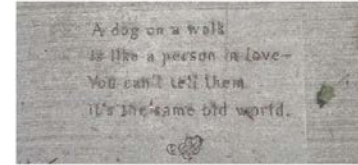 A dog on a walk
is like a person in love–
You can't tell them
it's the same old world.